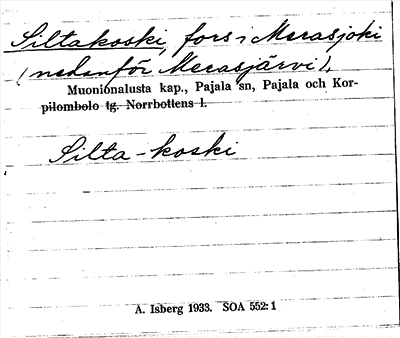 Siltakoski, fors i Merasjoki
(nedanför Merasjärvi).
Muonionalusta kap., Pajala sn, Pajala och Kor-
pilombolo tg. Norrbottens l.
Silta-koski
A. Isberg 1933. SOA 552:1